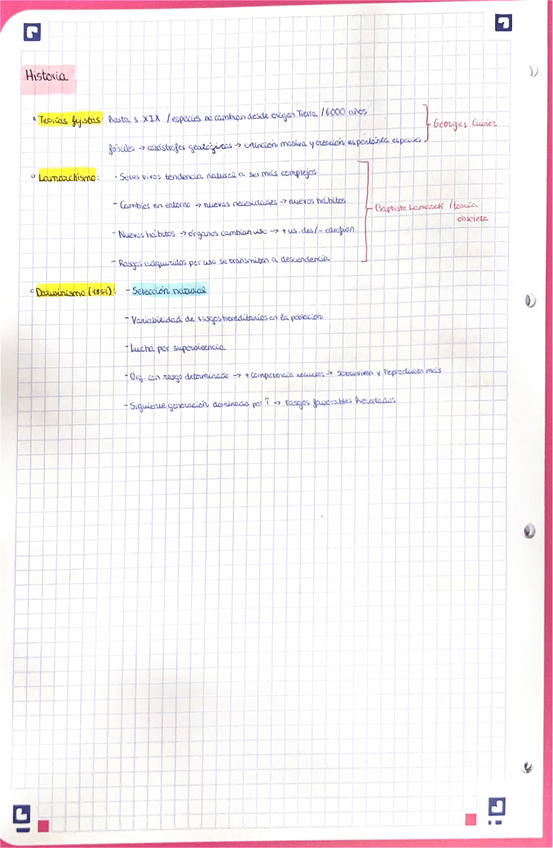 Historia
Teorías fijistas: hasta s. XIX / especies no cambian desde origen Tierra / 6000 años
fósiles → catástrofes geológicas → extinción masiva y creación espontánea especies
Georges Cuvier
Lamarckismo: - Seres vivos tendencia natural a ser más complejos
- Cambios en entorno → nuevas necesidades → nuevos hábitos
- Nuevos hábitos → órganos cambian uso → + us. des/- atrofian
- Rasgos adquiridos por uso se transmiten a descendencia
Baptiste Lamarck / teoría
obsoleta
Darwinismo: - Selección natural
- Variabilidad de rasgos hereditarios en la población
- Lucha por supervivencia
- Org. con rasgo determinado → + competencia recursos → sobreviven y reproducen más
- Siguiente generación dominado por ↑ → rasgos favorables heredados